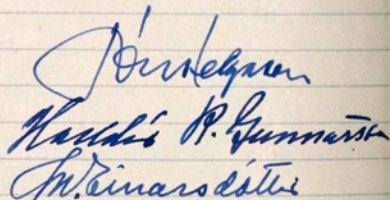 Jón Helgason
Halldís R. Gunnarsson
Einarsdóttir